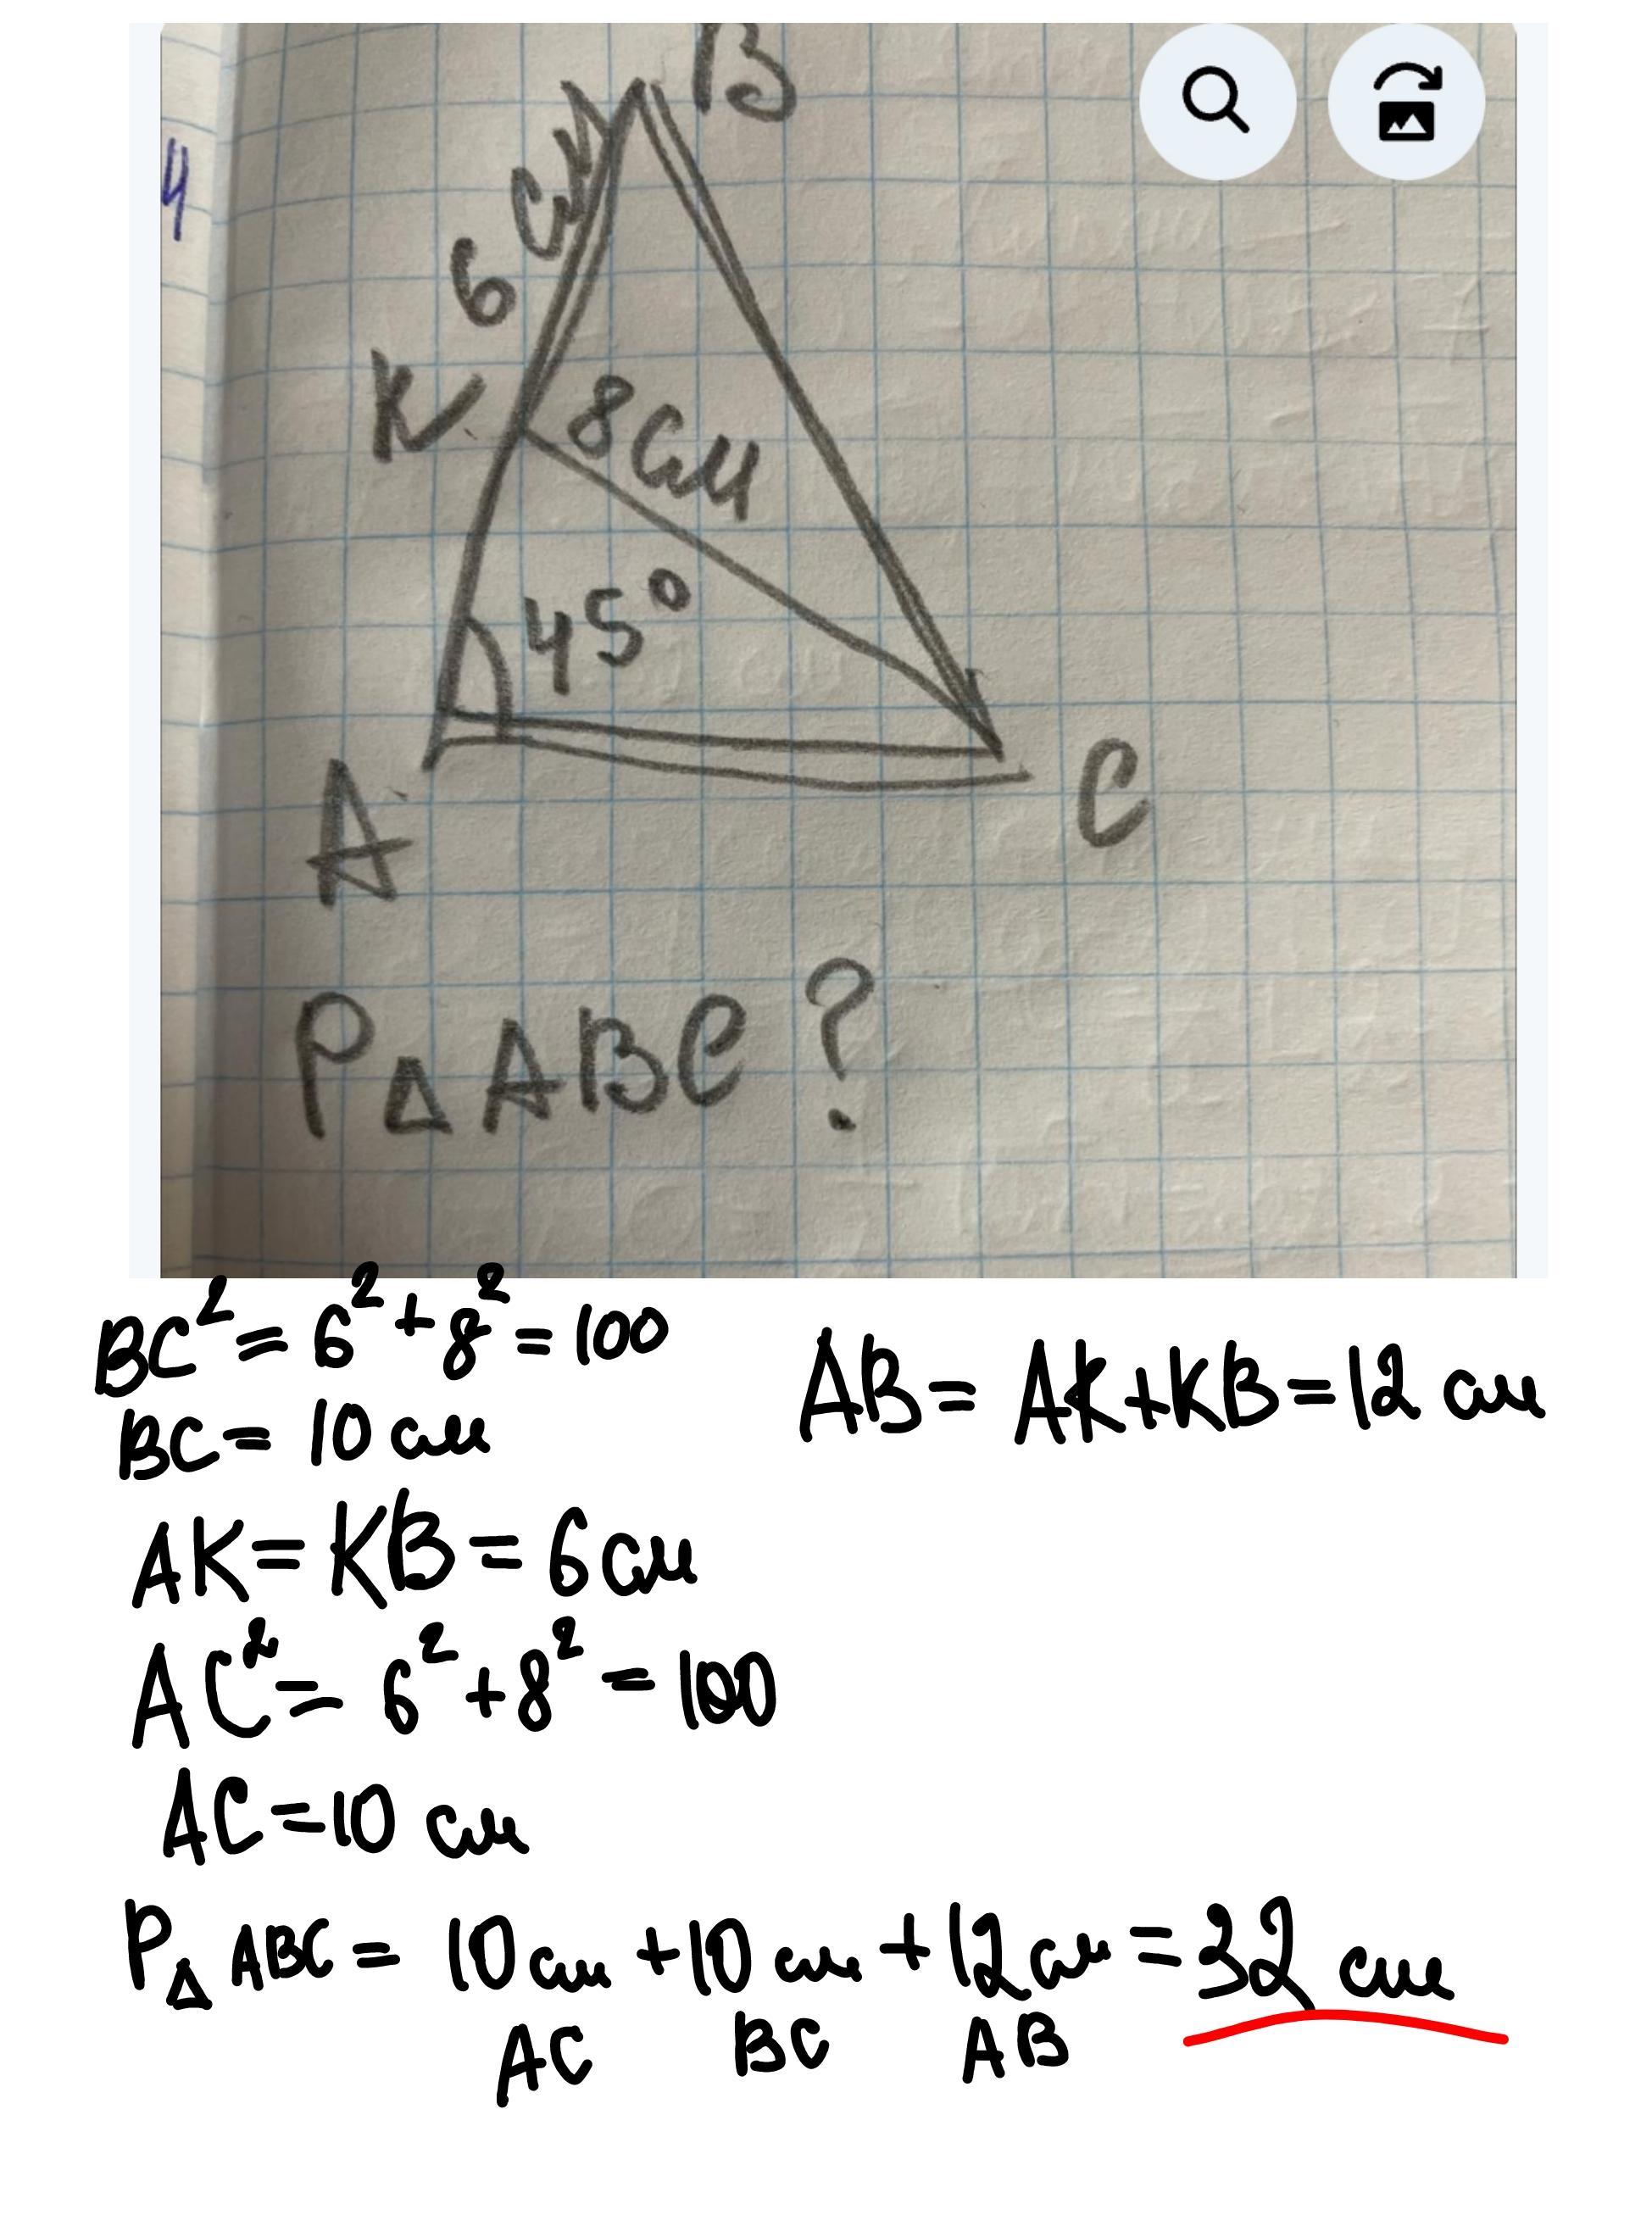 4
B
6 см
K
8 см
45°
A
C
P△ABC?
BC² = 6² + 8² = 100
BC = 10 см
AB = AK+KB = 12 см
AK = KB = 6 см
AC² = 6² + 8² = 100
AC = 10 см
P△ ABC = 10 см + 10 см + 12 см = 32 см
AC BC AB